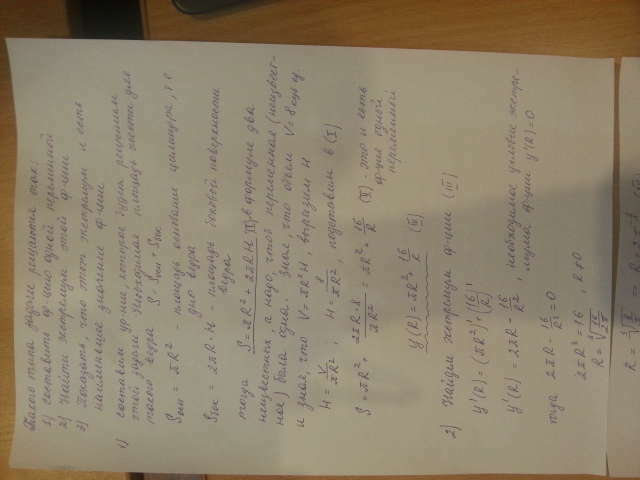 Такого типа задачи решаются так:
1) составить ф-цию одной переменной
2) Найти экстремумы этой ф-ции
3) Показать, что этот экстремум и есть
наименьшее значение ф-ции
1) составим ур-ние, которое будет решением
этой задачи. Необходимая площадь жести для
такого ведра S = Sосн + Sбок
Sосн = πR² - площадь основания цилиндра, т.е.
дно ведра
Sбок = 2πR·H - площадь боковой поверхности
ведра
тогда S = πR² + 2πRH (I), в формуле два
неизвестных, а надо, чтоб переменная (неизвест-
ная) была одна. Зная, что объем V = 8 куб ед.
и зная, что V = πR²H, выразим H
H = V/πR²; H = 8/πR², подставим в (I)
S = πR² + 2πR·8/πR² = πR² + 16/R (II) - это и есть
ф-ция одной
переменной
y(R) = πR² + 16/R (II)
2) Найдем экстремумы ф-ции (II)
y'(R) = (πR²)' + (16/R)'
y'(R) = 2πR - 16/R², необходимое условие экстре-
мума ф-ции y'(R) = 0
тогда 2πR - 16/R² = 0
2πR³ = 16, R ≠ 0
R = ∛16/2π